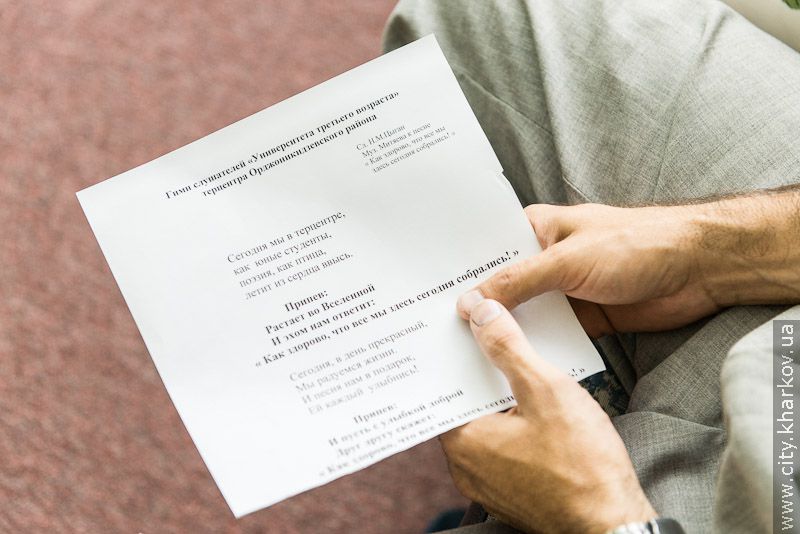 Гимн слушателей «Университета третьего возраста»
терцентра Орджоникидзевского района
Сл. И.М.Цыган
Муз. Митяева к песне
« Как здорово, что все мы
здесь сегодня собрались! »
Сегодня мы в терцентре,
как юные студенты,
поэзия, как птица,
летит из сердца ввысь.
Припев:
Растает во Вселенной
И эхом нам ответит:
« Как здорово, что все мы здесь сегодня собрались! »
Сегодня, в день прекрасный,
Мы радуемся жизни.
И песня нам в подарок,
Ей каждый улыбнись!
Припев:
И пусть с улыбкой доброй
Друг другу скажет:
« Как здорово, что все мы здесь сегодня собрались! »
www.city.kharkov.ua